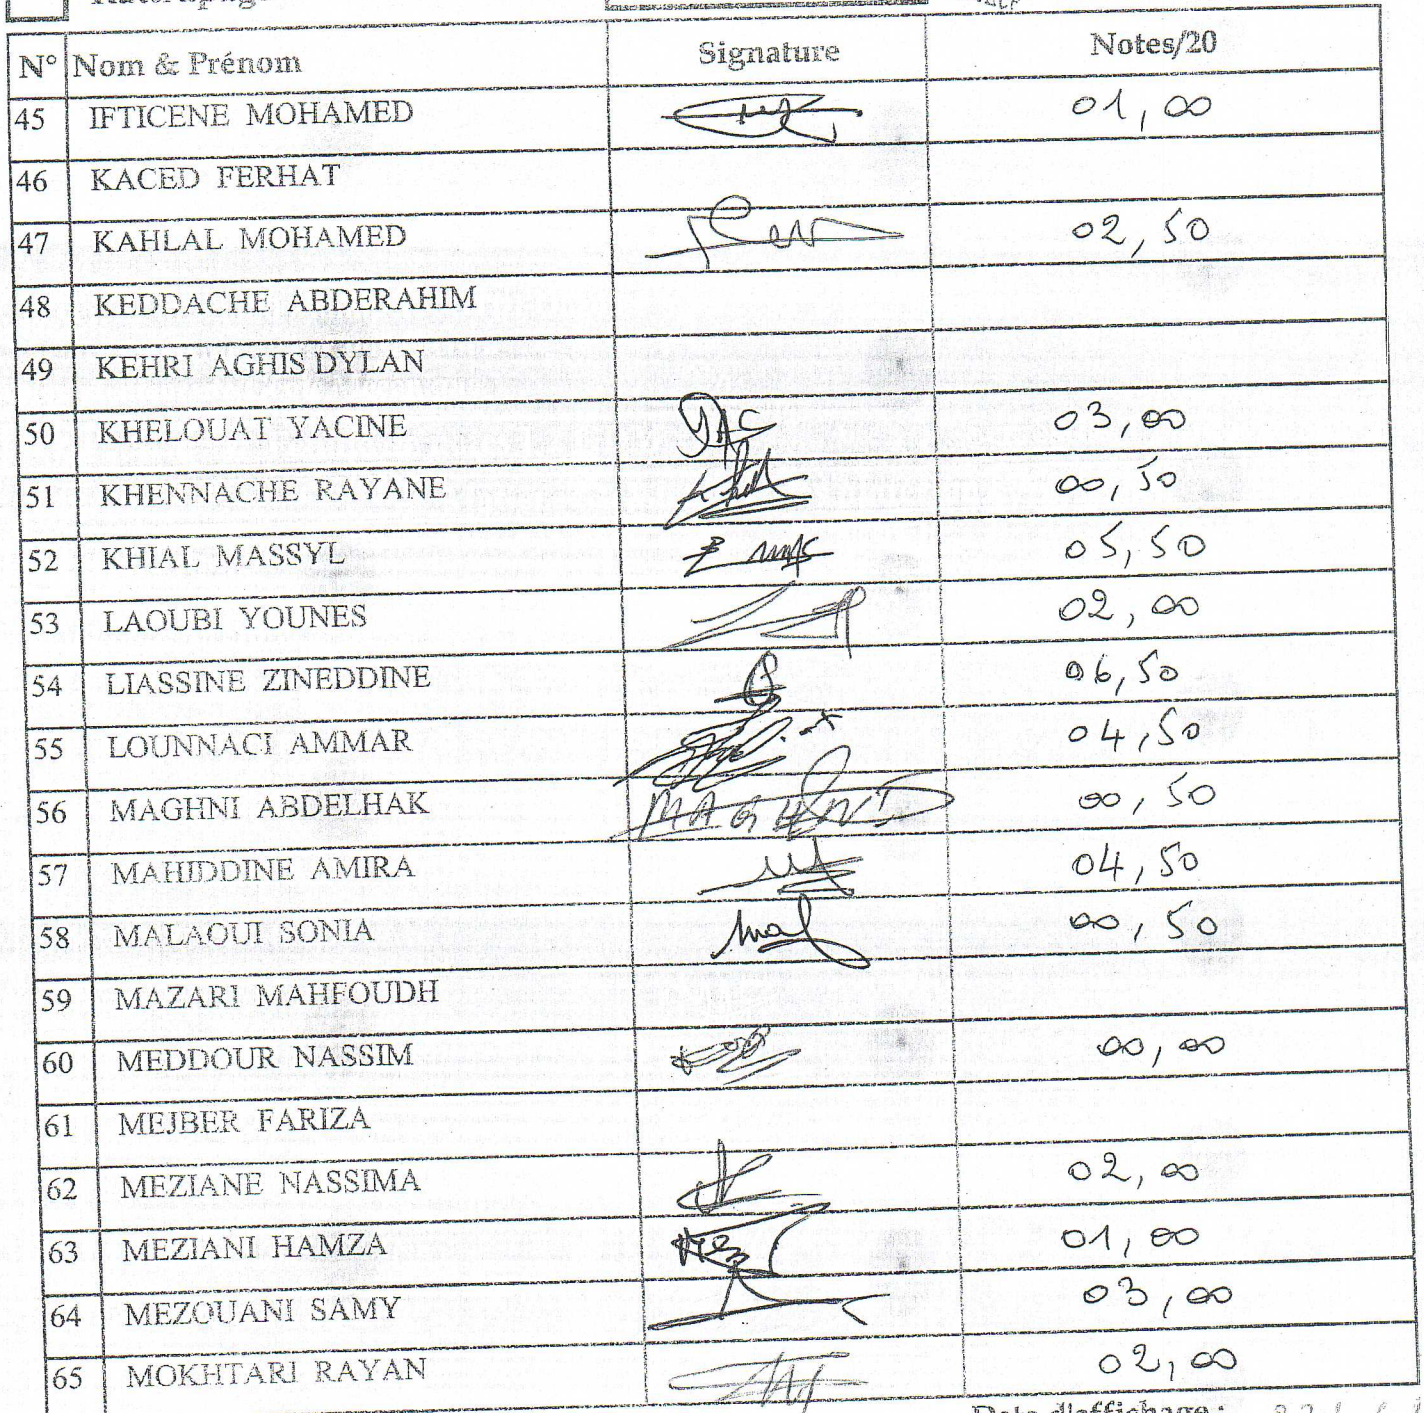 N° Nom & Prénom Signature Notes/20
45 IFTICENE MOHAMED 01,00
46 KACED FERHAT
47 KAHLAL MOHAMED 02,50
48 KEDDACHE ABDERAHIM
49 KEHRI AGHIS DYLAN
50 KHELOUAT YACINE YAC 03,00
51 KHENNACHE RAYANE 00,50
52 KHIAL MASSYL 05,50
53 LAOUBI YOUNES 02,00
54 LIASSINE ZINEDDINE 06,50
55 LOUNNACI AMMAR 04,50
56 MAGHNI ABDELHAK MAGHNI 00,50
57 MAHIDDINE AMIRA 04,50
58 MALAOUI SONIA mal 00,50
59 MAZARI MAHFOUDH
60 MEDDOUR NASSIM 00,00
61 MEJBER FARIZA
62 MEZIANE NASSIMA 02,00
63 MEZIANI HAMZA 01,00
64 MEZOUANI SAMY 03,00
65 MOKHTARI RAYAN 02,00
Date d'affichage :